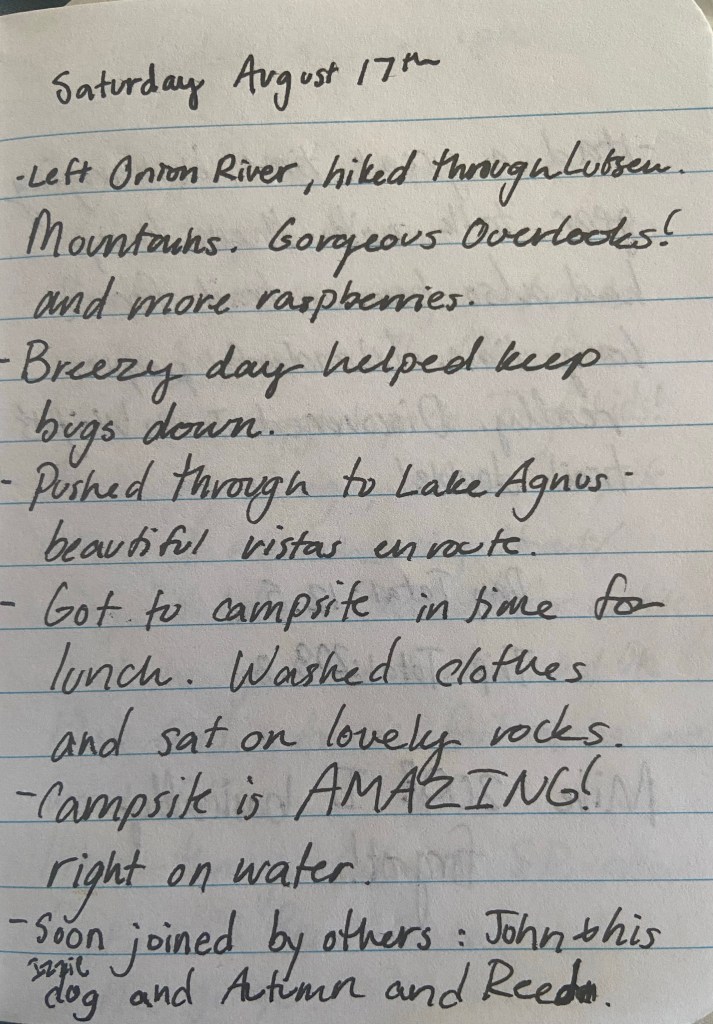 Saturday August 17th
-Left Onion River, hiked through Lutsen.
Mountains. Gorgeous Overlooks!
and more raspberries.
- Breezy day helped keep
bugs down.
- Pushed through to Lake Agnus -
beautiful vistas en route.
- Got to campsite in time for
lunch. Washed clothes
and sat on lovely rocks.
- Campsite is AMAZING!
right on water.
- Soon joined by others: John & his
dog and Autumn and Reed.